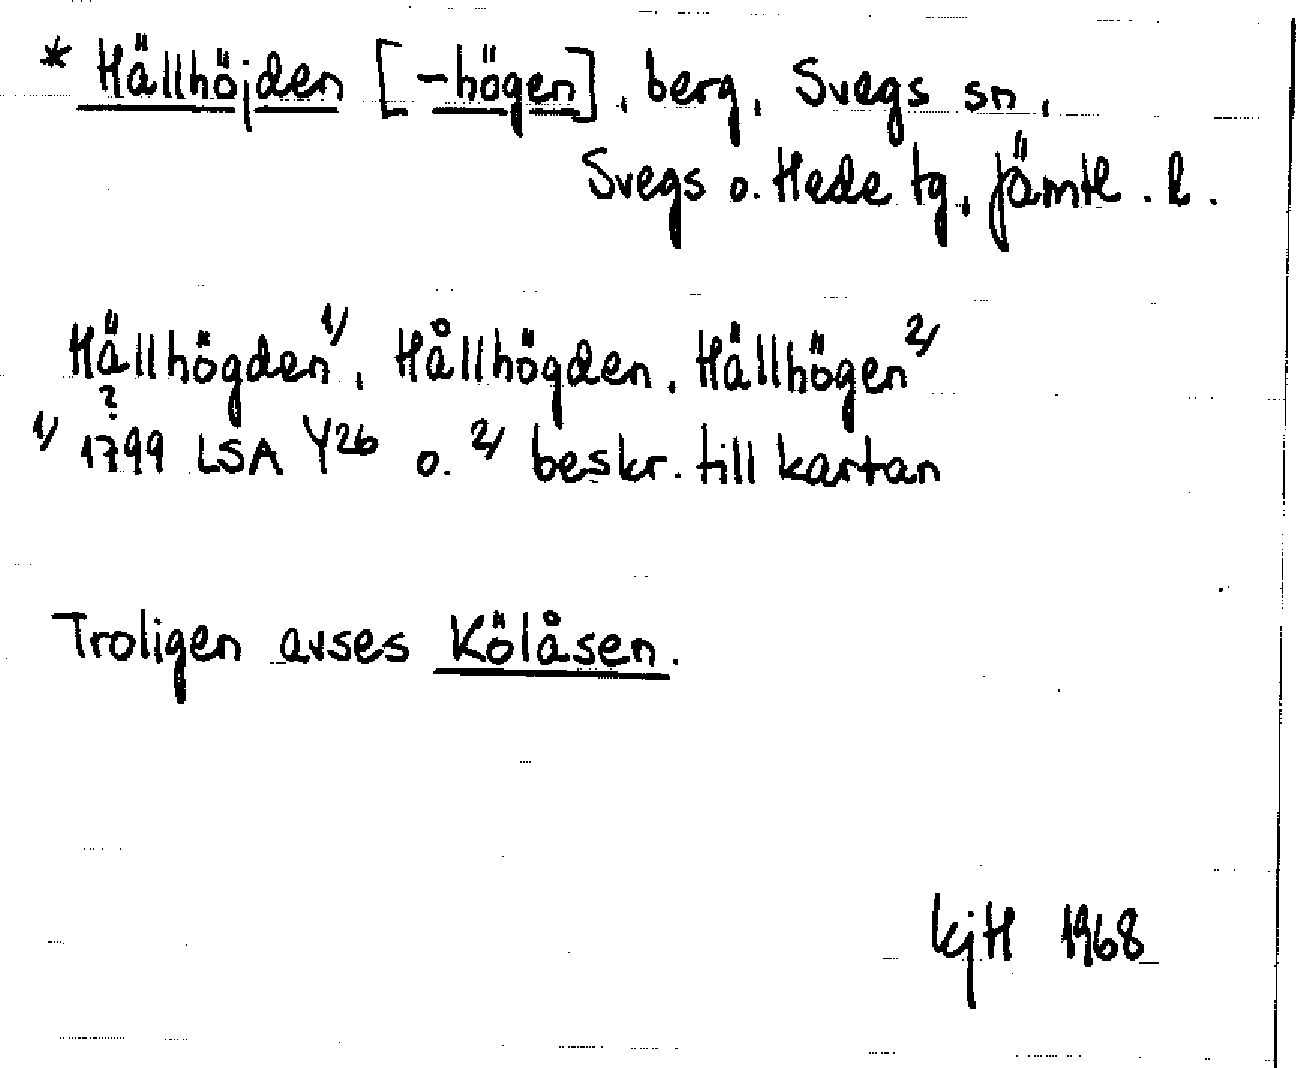 * Hällhöjden [-högen], berg, Svegs sn,
Svegs o. Hede tg, Jämtl. l.
Hällhögden 1/, Hållhögden, Hällhögen 2/
?
1/ 1799 LSA Y26 o. 2/ beskr. till kartan
Troligen avses Kölåsen.
kjH 1968